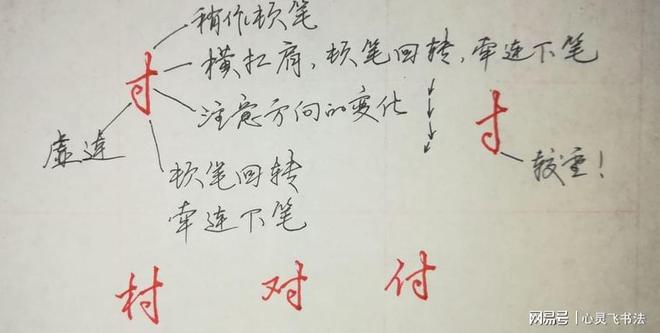 稍作顿笔
寸
横扛肩,顿笔回转,牵连下笔
注意方向的变化
虚连
寸
较重!
顿笔回转
牵连下笔
村 对 付
网易号 | 心灵飞书法